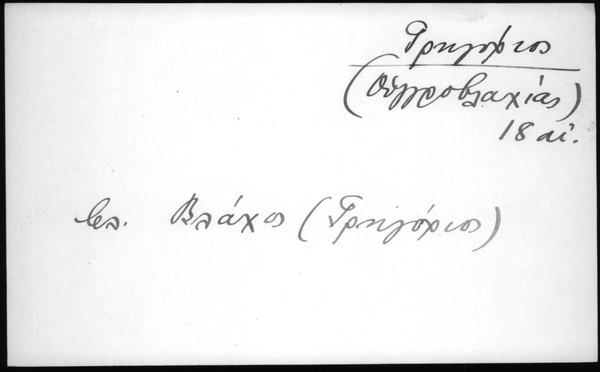 Γρηγόριος
(Οὐγγροβλαχίας)
18 αἰ.
βλ. Βλάχος (Γρηγόριος)